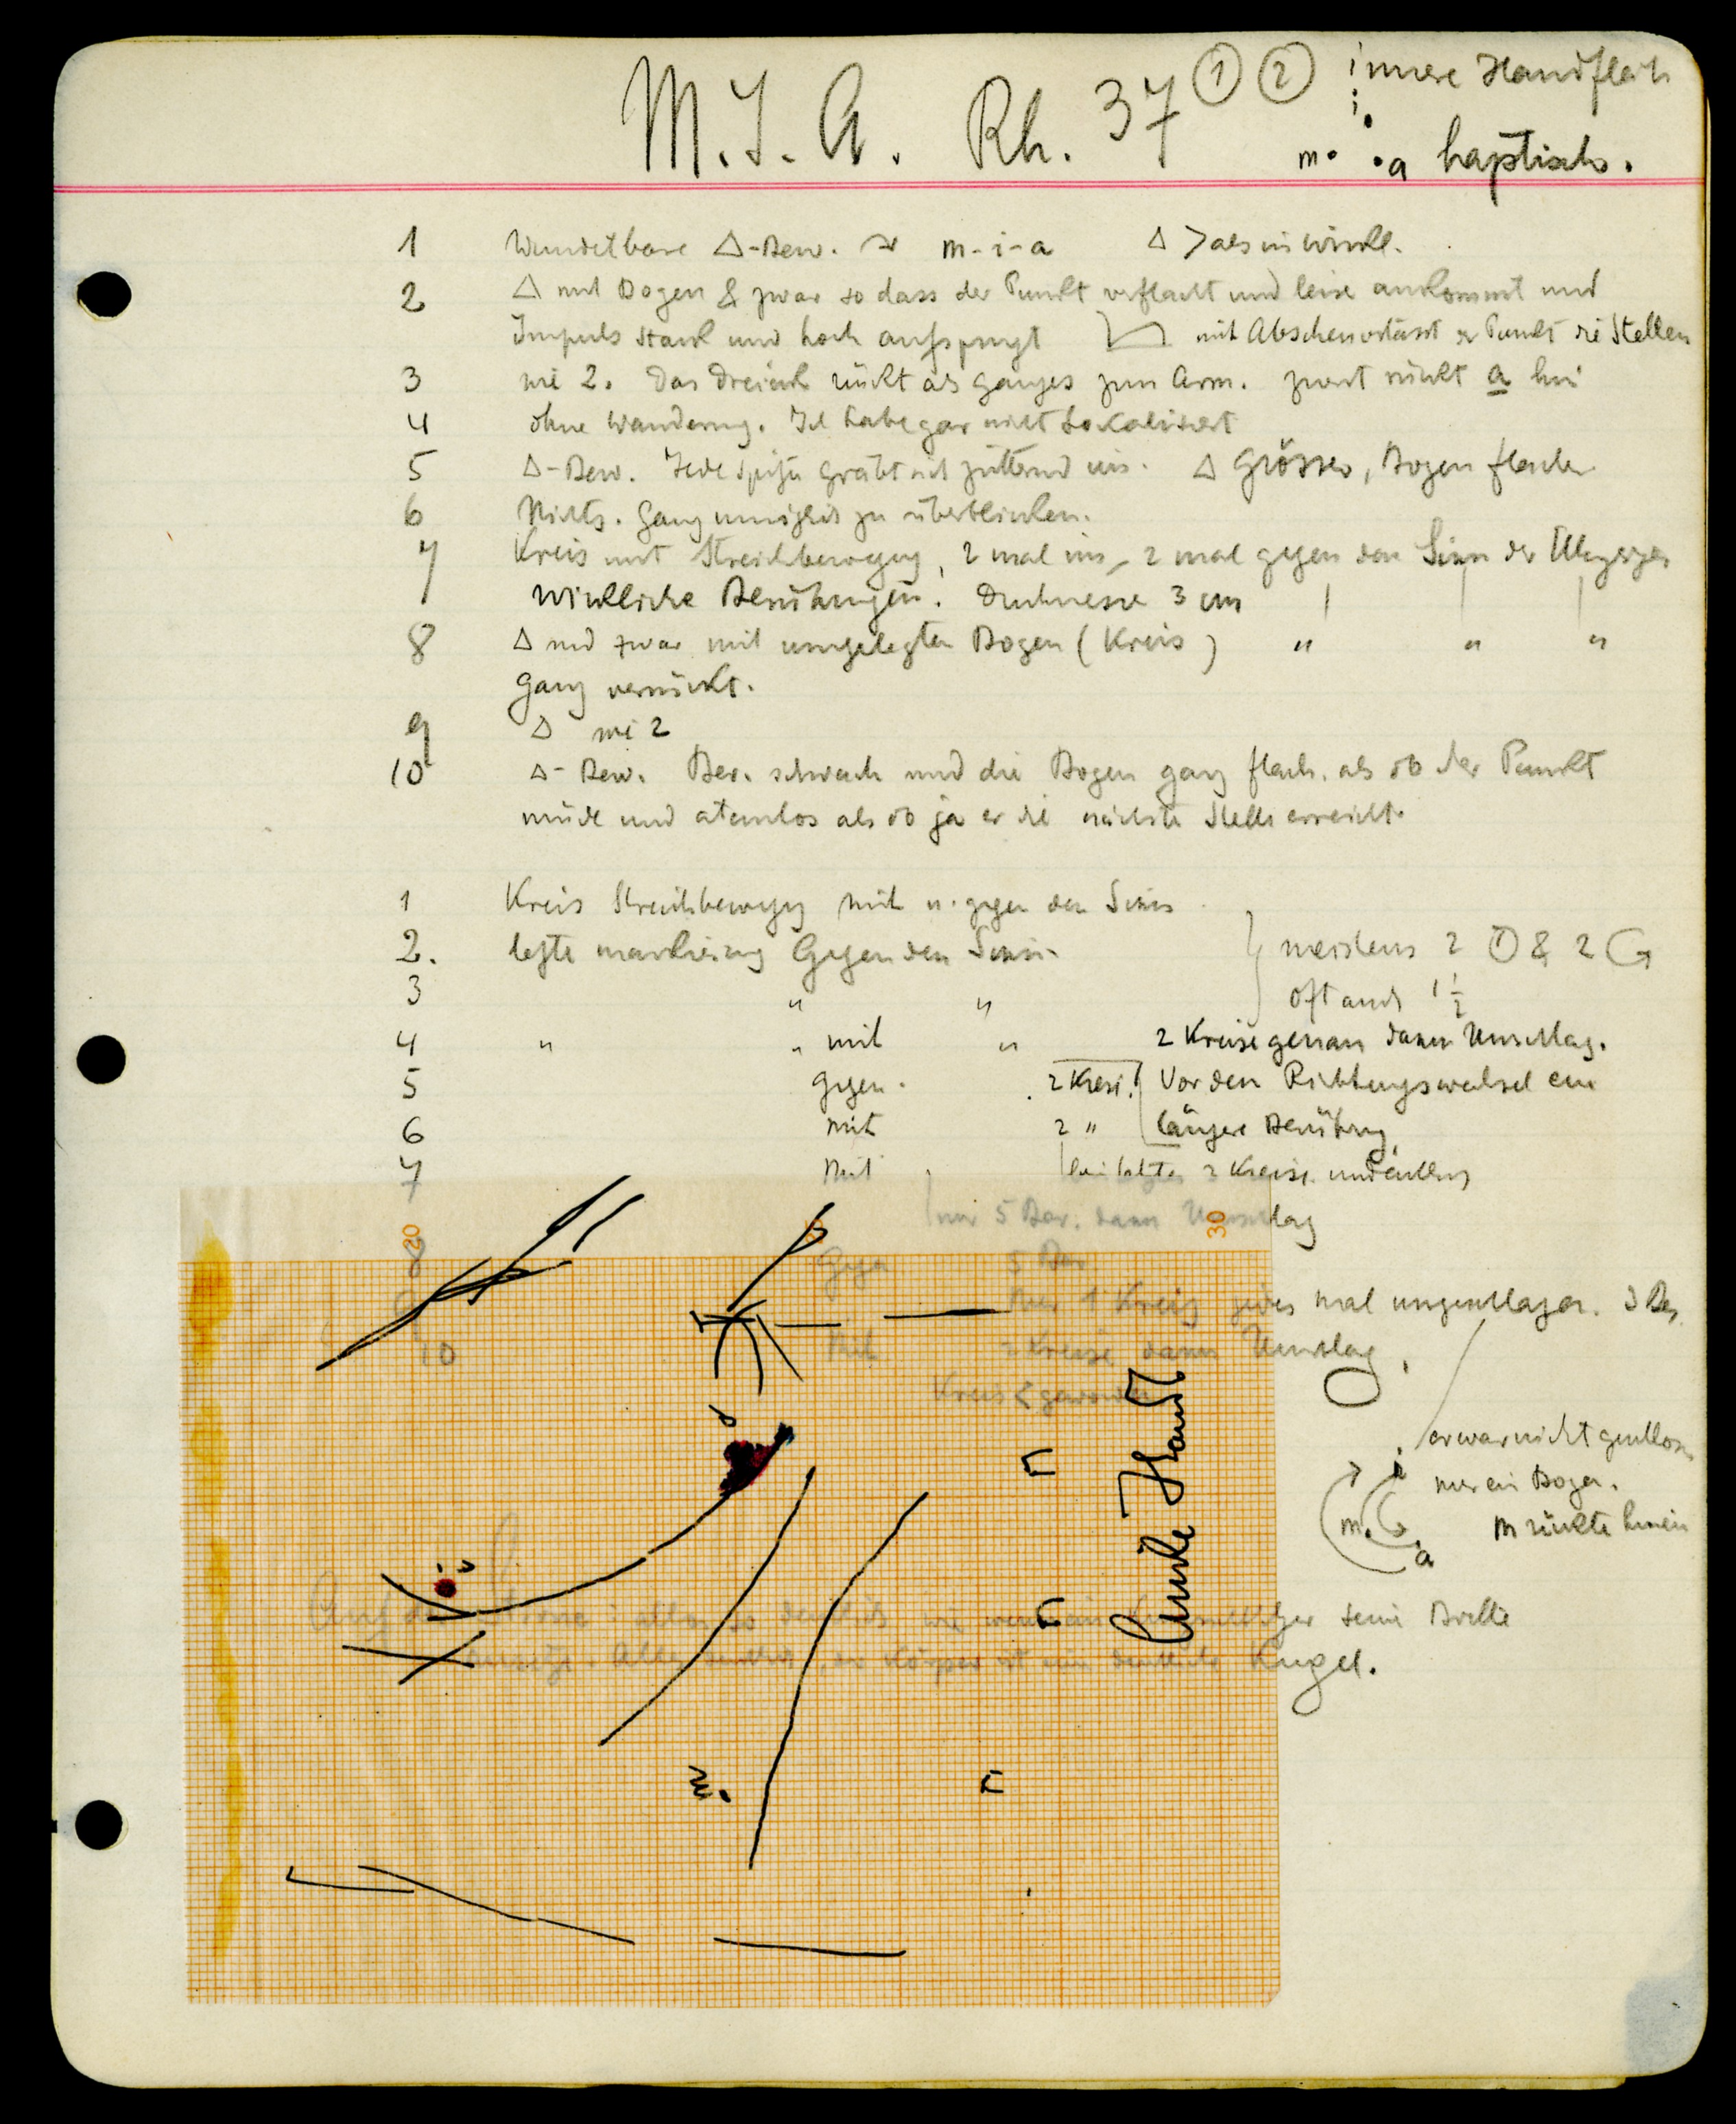 M.I.A. Rh. 37 ① ② innere Handfläche
i
m. .a haptisch.
1 Wunderbare Δ-Bew. m-i-a Δ > als in Wirkl.
2 Δ mit Bogen & zwar so dass der Punkt verflacht und leise ankommt und
Impuls stark und hoch aufspringt mit Abscheu verlässt der Punkt die Stellen
3 wie 2. Das Dreieck rückt als ganzes zum Arm. zuerst rückt a hin
4 ohne Wanderung. Ich habe gar nicht lokalisiert
5 Δ-Bew. Jede Spitze gräbt sich zitternd ein. Δ Grösser, Bogen flacher
6 Nichts. Ganz unmöglich zu überblicken.
7 Kreis mit Streichbewegung, 2 mal im, 2 mal gegen den Sinn der Uhrzeiger
Wirkliche Berührungen! Durchmesser 3 cm
8 Δ und zwar mit umgelegten Bogen (Kreis) " " "
Ganz verrückt.
9 Δ wie 2
10 Δ-Bew. Ber. schwach und die Bogen ganz flach. als ob der Punkt
müde und atemlos als ob ja er die nächste Stelle erreicht.
1 Kreis Streichbewegung mit u. gegen den Sinn
2. letzte Markierung Gegen den Sinn } meistens 2 & 2
3 " " oft auch 1 1/2
4 " " mit " 2 Kreise genau dann Umschlag.
5 gegen. 2 Kreise. Vor dem Richtungswechsel eine
6 mit 2 " längere Berührung
7 mit 2 Kreise
nur 5 Ber. dann Umschlag
20 30
8 Gegen 5 Ber.
9 nur 1 Kreis jedes mal umgeschlagen. 3 Ber.
10 Mit 2 Kreise dann Umschlag.
Kreis < geworden
er war nicht geschlossen
nur ein Bogen.
i
m. a m rückte hinein
Linke Hand
m.
Auf der Stirne: alles so deutlich wie wenn ein Kurzsichtiger seine Brille
aufsetzt. Alles deutlich, der Körper ist eine deutliche Kugel.